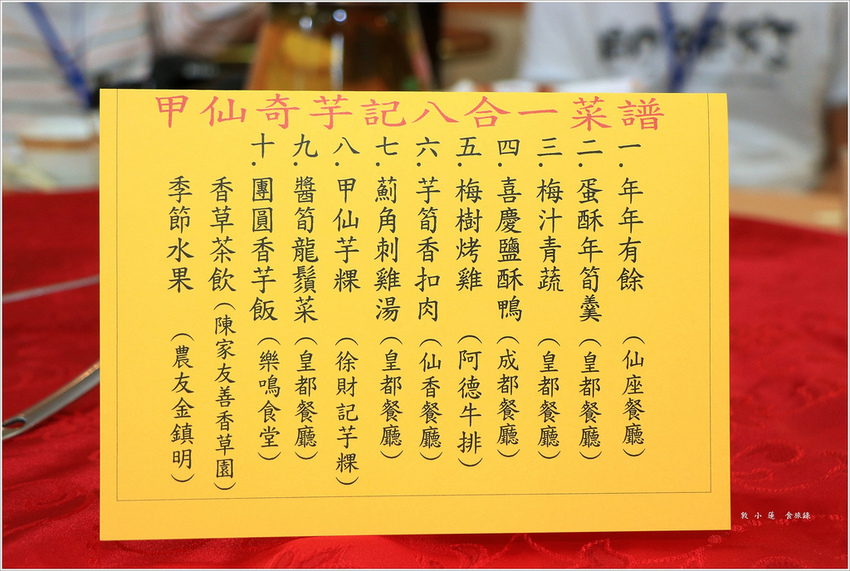 甲仙奇芋記八合一菜譜
一.年年有餘(仙座餐廳)
二.蛋酥年筍羹(皇都餐廳)
三.梅汁青蔬(皇都餐廳)
四.喜慶鹽酥鴨(成都餐廳)
五.梅樹烤雞(阿德牛排)
六.芋筍香扣肉(仙香餐廳)
七.薊角刺雞湯(皇都餐廳)
八.甲仙芋粿(徐財記芋粿)
九.醬筍龍鬚菜(皇都餐廳)
十.團圓香芋飯(樂鳴食堂)
香草茶飲(陳家友善香草園)
季節水果(農友金鎮明)
敦小蓮 食旅錄